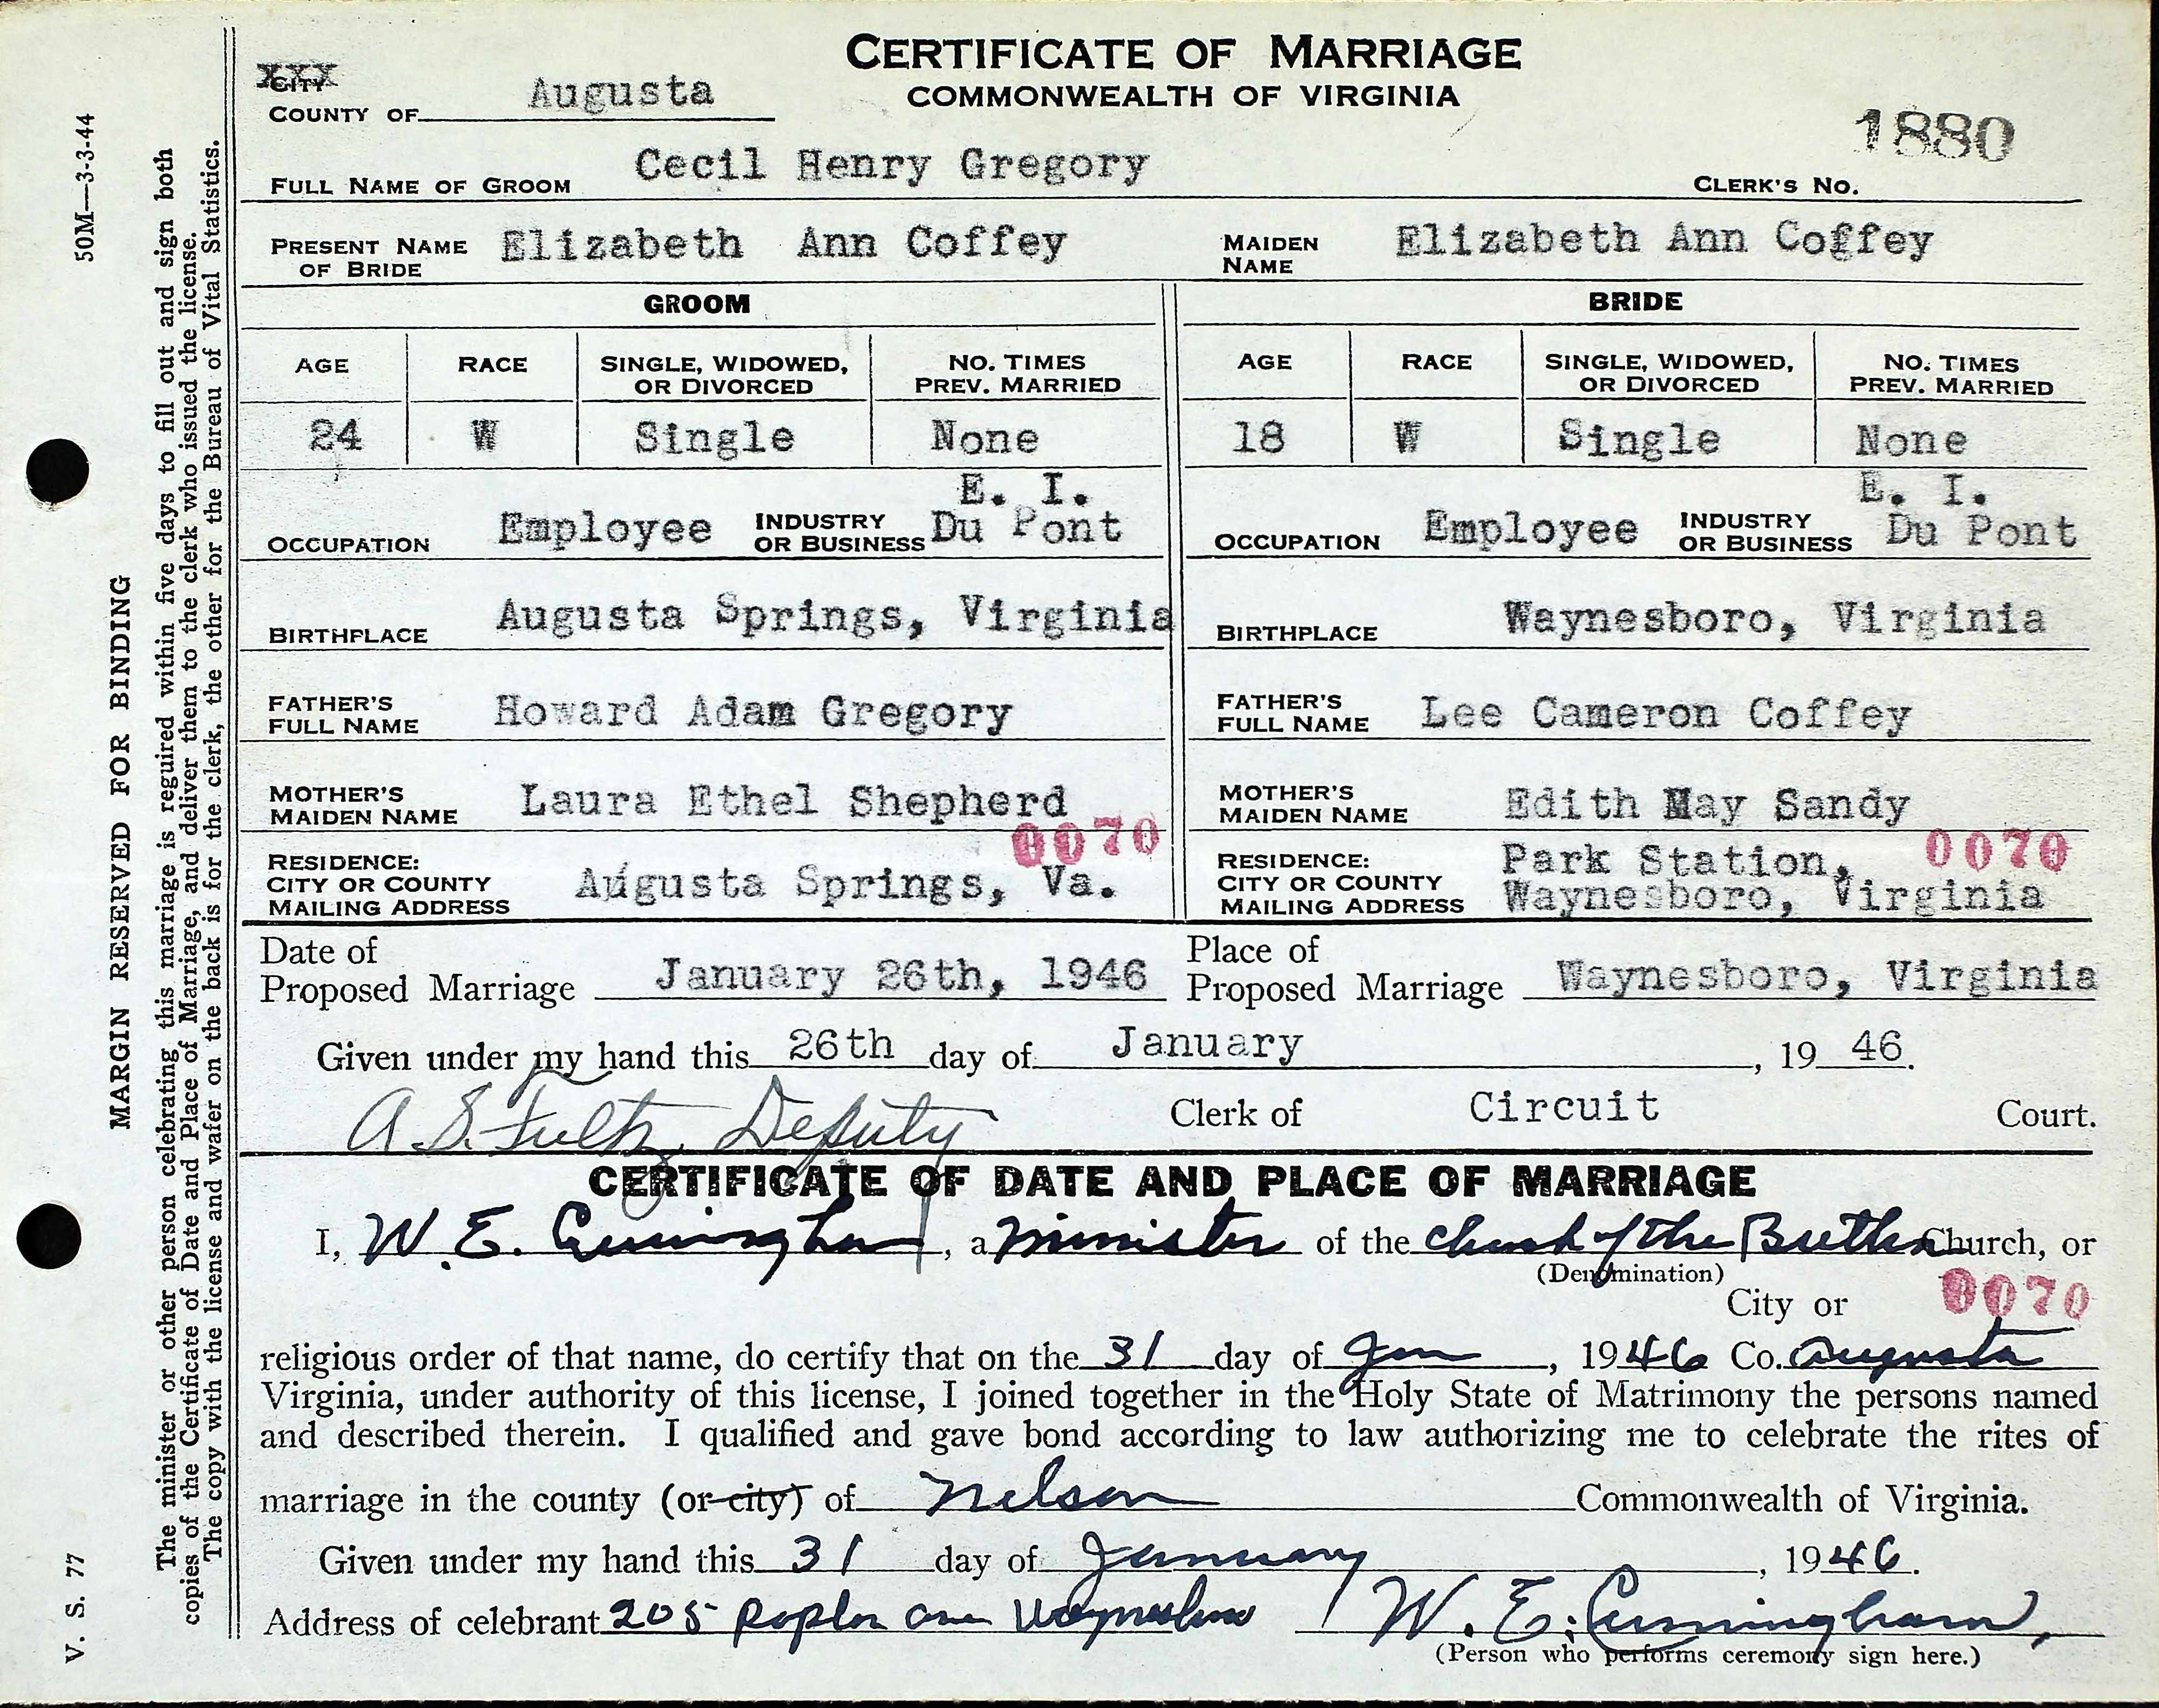 CERTIFICATE OF MARRIAGE
COMMONWEALTH OF VIRGINIA
XXX
CITY
COUNTY OF Augusta
1880
FULL NAME OF GROOM Cecil Henry Gregory CLERK'S NO.
PRESENT NAME OF BRIDE Elizabeth Ann Coffey MAIDEN NAME Elizabeth Ann Coffey
GROOM BRIDE
AGE RACE SINGLE, WIDOWED, OR DIVORCED NO. TIMES PREV. MARRIED AGE RACE SINGLE, WIDOWED, OR DIVORCED NO. TIMES PREV. MARRIED
24 W Single None 18 W Single None
OCCUPATION Employee INDUSTRY OR BUSINESS E. I. Du Pont OCCUPATION Employee INDUSTRY OR BUSINESS E. I. Du Pont
BIRTHPLACE Augusta Springs, Virginia BIRTHPLACE Waynesboro, Virginia
FATHER'S FULL NAME Howard Adam Gregory FATHER'S FULL NAME Lee Cameron Coffey
MOTHER'S MAIDEN NAME Laura Ethel Shepherd MOTHER'S MAIDEN NAME Edith May Sandy
0070 0070
RESIDENCE: CITY OR COUNTY MAILING ADDRESS Augusta Springs, Va. RESIDENCE: CITY OR COUNTY MAILING ADDRESS Park Station, Waynesboro, Virginia
Date of Proposed Marriage January 26th, 1946 Place of Proposed Marriage Waynesboro, Virginia
Given under my hand this 26th day of January, 19 46.
A. S. Fultz, Deputy Clerk of Circuit Court.
CERTIFICATE OF DATE AND PLACE OF MARRIAGE
I, W. E. Cunningham, a minister of the Church of the Brethren Church, or
(Denomination)
City or 0070
religious order of that name, do certify that on the 31 day of Jan, 1946 Co. Augusta
Virginia, under authority of this license, I joined together in the Holy State of Matrimony the persons named
and described therein. I qualified and gave bond according to law authorizing me to celebrate the rites of
marriage in the county (or city) of Nelson Commonwealth of Virginia.
Given under my hand this 31 day of January, 1946.
Address of celebrant 205 Poplar Ave Waynesboro W. E. Cunningham,
(Person who performs ceremony sign here.)
50M—3-3-44
MARGIN RESERVED FOR BINDING
V. S. 77
The minister or other person celebrating this marriage is required within five days to fill out and sign both
copies of the Certificate of Date and Place of Marriage, and deliver them to the clerk who issued the license.
The copy with the license and wafer on the back is for the clerk, the other for the Bureau of Vital Statistics.